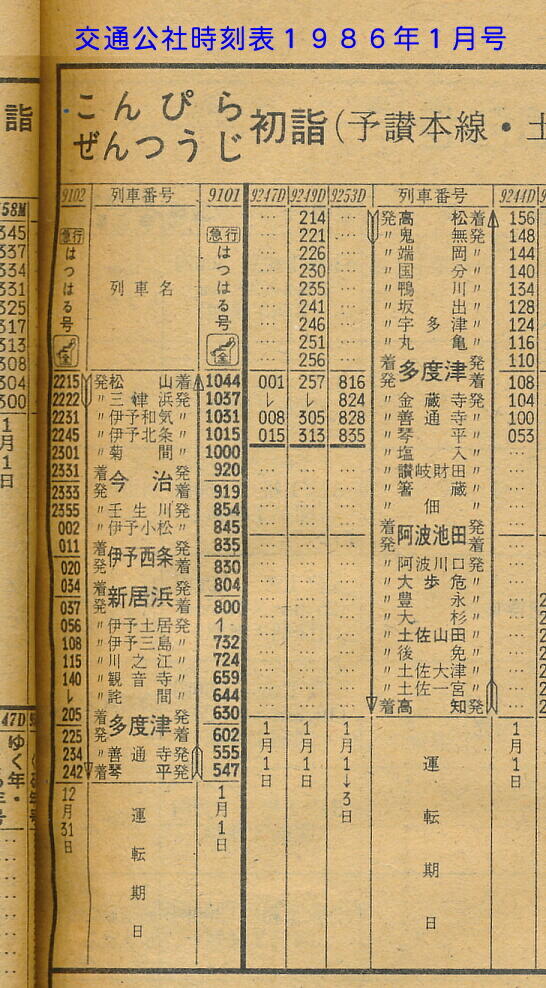 交通公社時刻表1986年1月号
こんぴら
ぜんつうじ
初詣(予讃本線・土
詣
9102 列車番号 9101
急行 はつはる号 列車名 急行 はつはる号
2215 発松山着 1044
2222 〃三津浜発 1037
2231 〃伊予和気〃 1031
2245 〃伊予北条〃 1015
2301 〃菊間〃 1000
2331 着今治発 920
2333 発今治着 919
2355 〃壬生川発 854
002 〃伊予小松〃 845
011 着伊予西条発 835
020 発伊予西条着 830
034 着新居浜発 804
037 発新居浜着 800
056 〃伊予土居発 ↿
108 〃伊予三島〃 732
115 〃川之江〃 724
140 〃観音寺〃 659
レ 〃詫間〃 644
205 着多度津発 630
225 発多度津着 602
234 〃善通寺発 555
242 着琴平発 547
12月31日 運転期日 1月1日
9247D 9249D 9253D 列車番号 9244D
… 214 … 発高松着 156
… 221 … 〃鬼無発 148
… 226 … 〃端岡〃 144
… 230 … 〃国分〃 140
… 235 … 〃鴨川〃 134
… 241 … 〃坂出〃 128
… 246 … 〃宇多津〃 124
… 251 … 〃丸亀〃 116
… 256 … 着多度津発 110
001 257 816 発多度津着 108
レ レ 824 〃金蔵寺発 104
008 305 828 〃善通寺〃 100
015 313 835 〃琴平〃 053
〃塩入〃
〃讃岐財田〃
〃箸蔵〃
〃佃〃
着阿波池田発
発阿波池田着
〃阿波川口発
〃大歩危〃
〃豊永〃
〃大杉〃
〃土佐山田〃
〃後免〃
〃土佐大津〃
〃土佐一宮〃
着高知発
1月1日 1月1日 1月1↓3日 運転期日 1月1日
58M
345
337
334
331
325
317
313
308
304
300
1月1日
47D
ゆく年・